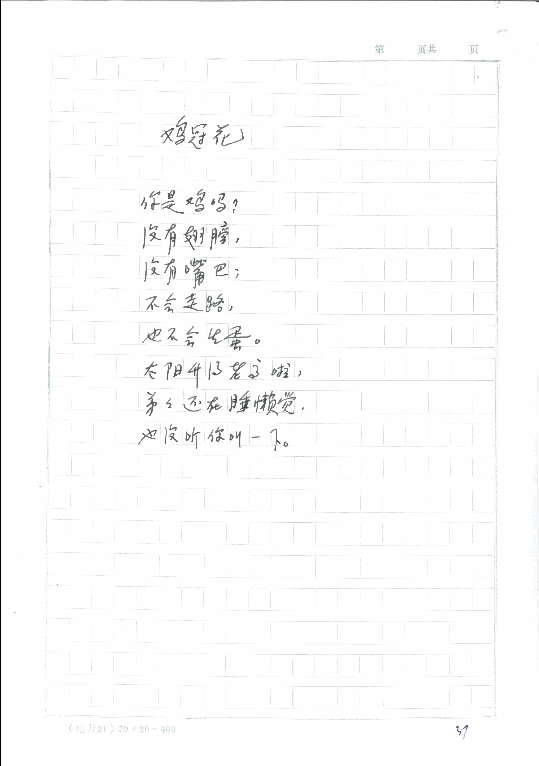 第　　页共　　页
鸡冠花
你是鸡吗？
没有翅膀，
没有嘴巴；
不会走路，
也不会生蛋。
太阳升得老高啦，
弟々还在睡懒觉，
也没听你叫一下。
20×20=400
37